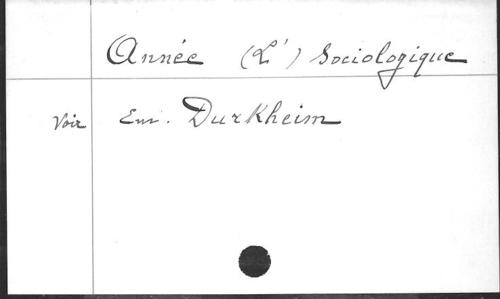 Année (L') Sociologique
Voir Em. Durkheim